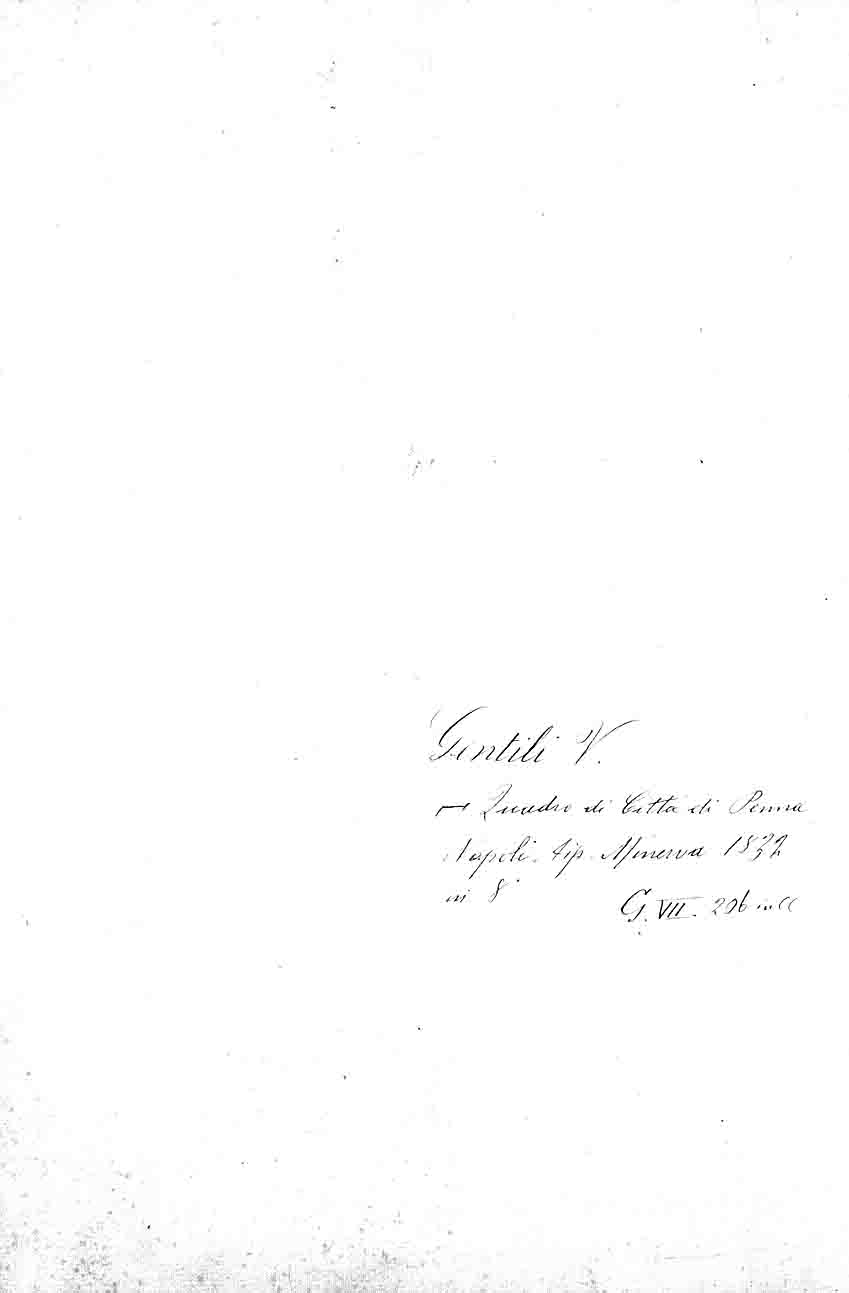 Gentili V.
Quadro di Città di Penna
Napoli. tip. Minerva 1832
in 8°
G. VII. 206